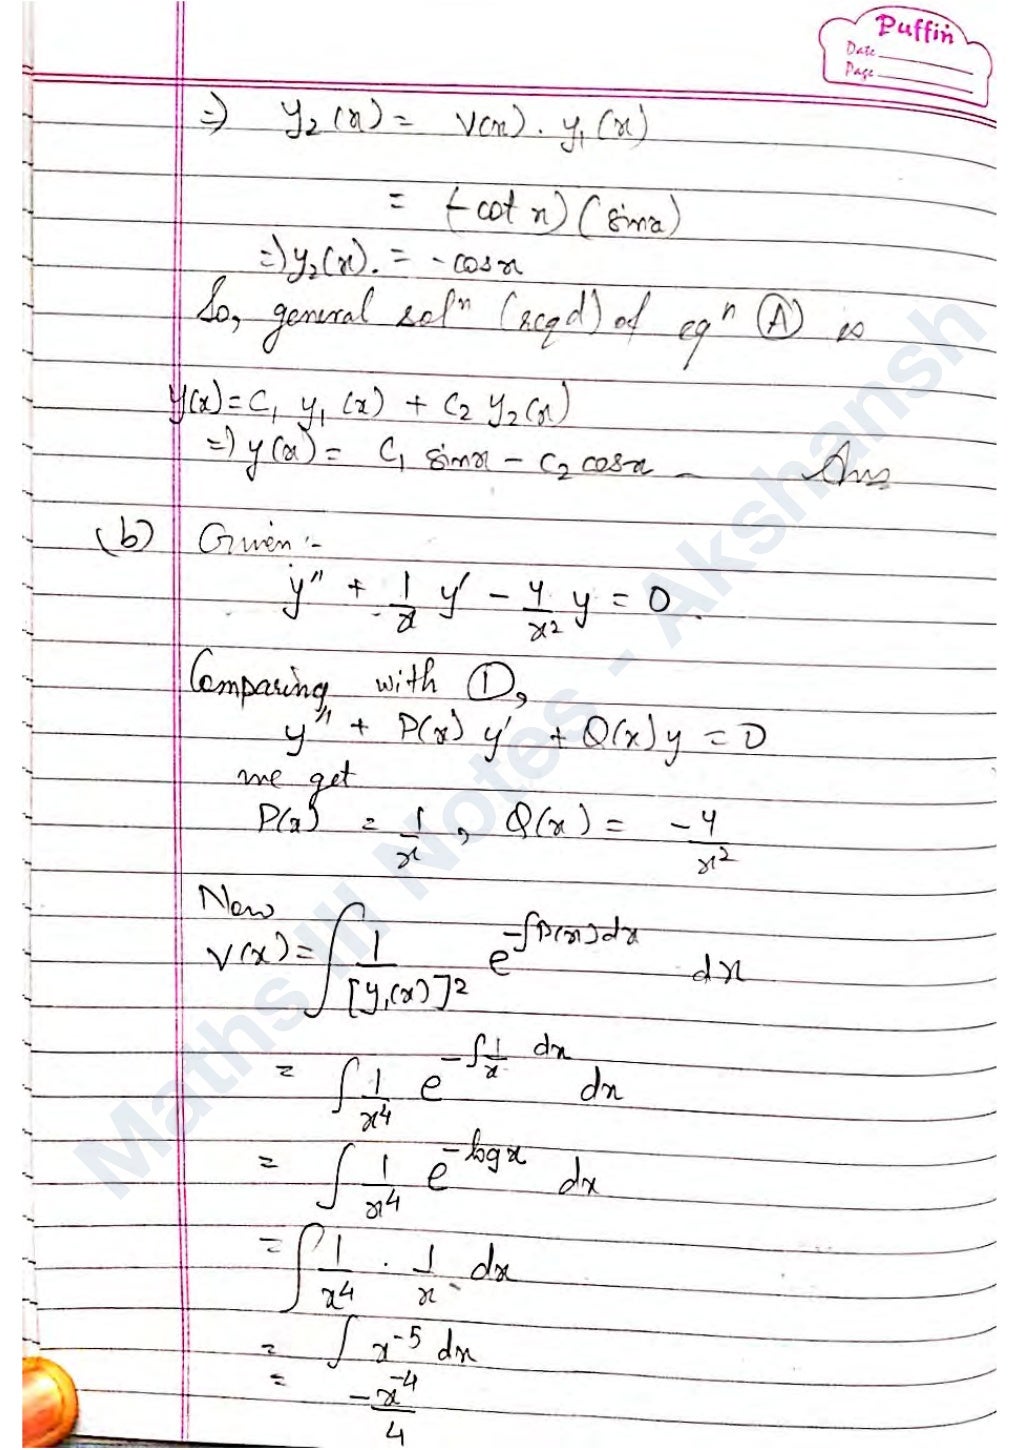 Puffin
Date
Page
⇒) y₂(x) = v(x) . y₁(x)
= (-cot x) (sinx)
⇒) y₂(x). = -cosx
So, general solⁿ (reqd) of eqⁿ Ⓐ is
y(x) = C₁ y₁(x) + C₂ y₂(x)
⇒) y(x) = C₁ sinx - C₂ cosx Ans
(b) Given :-
y'' + 1/x y' - 4/x² y = 0
Comparing with ①,
y'' + P(x) y' + Q(x)y = 0
we get
P(x) = 1/x , Q(x) = -4/x²
Now
v(x) = ∫ 1/[y₁(x)]² e^(-∫P(x)dx) dx
= ∫ 1/x⁴ e^(-∫1/x dx) dx
= ∫ 1/x⁴ e^(-log x) dx
= ∫ 1/x⁴ . 1/x dx
= ∫ x⁻⁵ dx
= -x⁻⁴/4
Maths III Notes - Akshansh